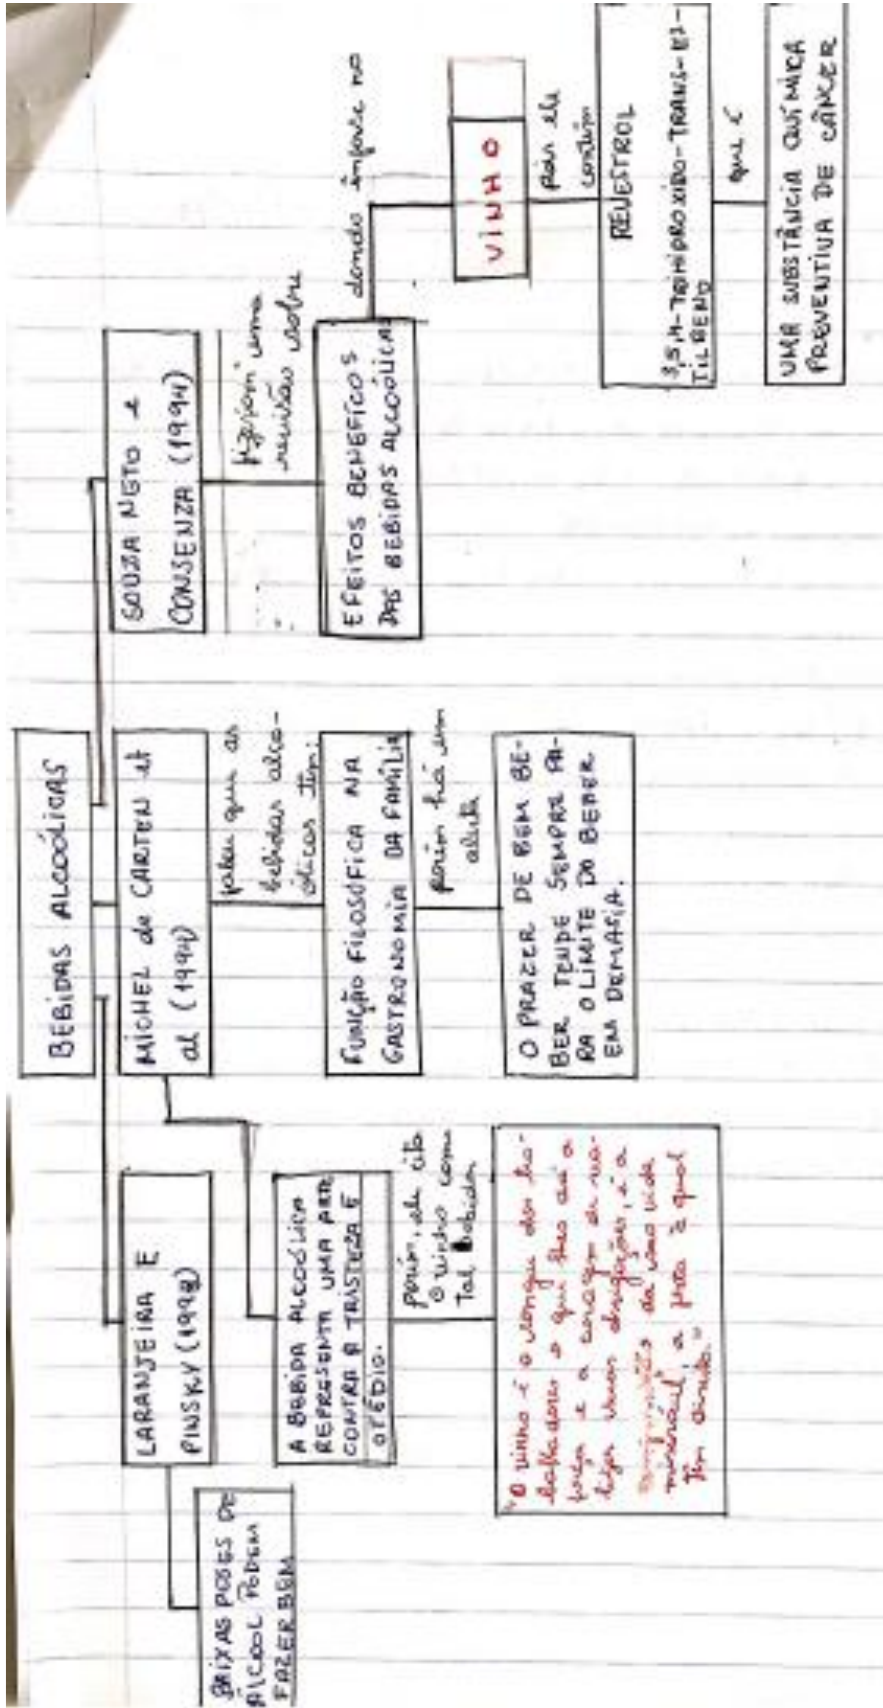 BEBIDAS ALCOÓLICAS
LARANJEIRA E
PINSKY (1998)
BAIXAS DOSES DE
ÁLCOOL PODEM
FAZER BEM
MICHEL de CARTEN et
al (1994)
A BEBIDA ALCOÓLICA
REPRESENTA UMA ARTE
CONTRA A TRISTEZA E
O TÉDIO.
porém, ele cita
o vinho como
Tal bebida
"O vinho é o sangue dos tra-
balhadores o que lhes dá a
força e a coragem de rea-
lizar suas obrigações, é a
da sua vida
miserável, a festa à qual
têm direito."
falam que as
bebidas alco-
ólicas têm:
FUNÇÃO FILOSÓFICA NA
GASTRONOMIA DA FAMÍLIA
porém há um
alerta
O PRAZER DE BEM BE-
BER TENDE SEMPRE PA-
RA O LIMITE DO BEBER
EM DEMASIA.
SOUZA NETO e
CONSENZA (1994)
fizeram uma
revisão sobre
EFEITOS BENEFÍCOS
DAS BEBIDAS ALCOÓLICAS
dando ênfase no
VINHO
pois ele
contém
REVESTROL
3,5,4-TRIHIDROXIDO-TRANS-ES-
TILBENO
que é
UMA SUBSTÂNCIA QUÍMICA
PREVENTIVA DE CÂNCER